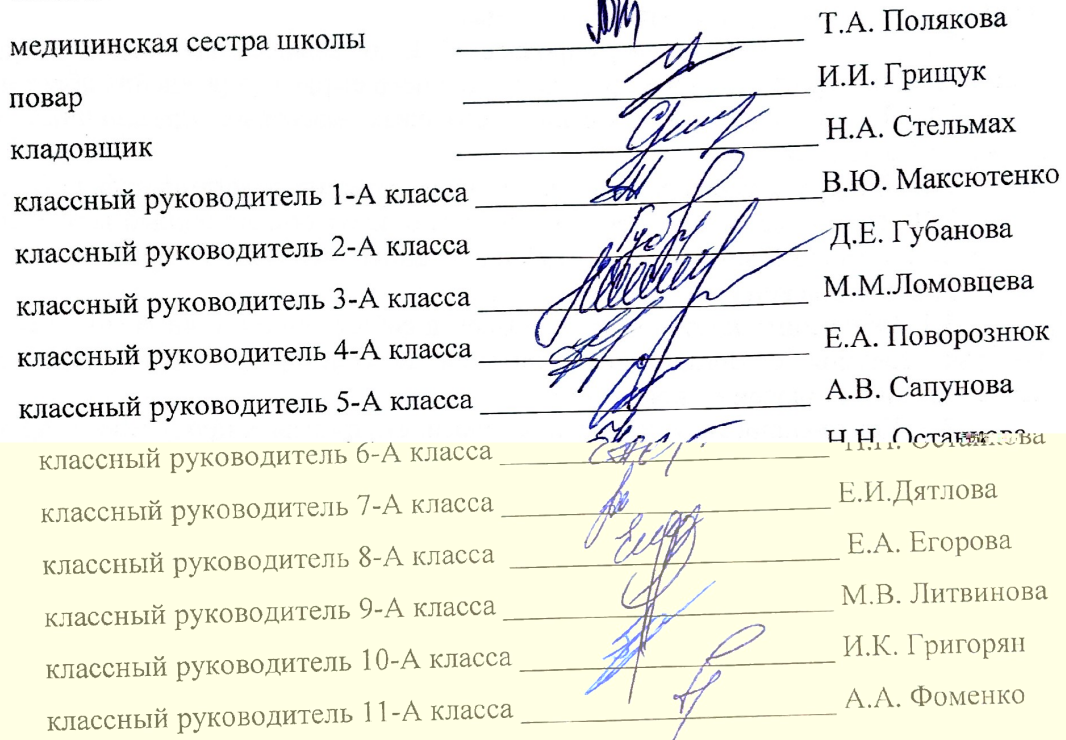 медицинская сестра школы ____________ Т.А. Полякова
повар ____________ И.И. Грищук
кладовщик ____________ Н.А. Стельмах
классный руководитель 1-А класса ____________ В.Ю. Максютенко
классный руководитель 2-А класса ____________ Д.Е. Губанова
классный руководитель 3-А класса ____________ М.М.Ломовцева
классный руководитель 4-А класса ____________ Е.А. Поворознюк
классный руководитель 5-А класса ____________ А.В. Сапунова
классный руководитель 6-А класса ____________ Н.Н.
классный руководитель 7-А класса ____________ Е.И.Дятлова
классный руководитель 8-А класса ____________ Е.А. Егорова
классный руководитель 9-А класса ____________ М.В. Литвинова
классный руководитель 10-А класса ____________ И.К. Григорян
классный руководитель 11-А класса ____________ А.А. Фоменко